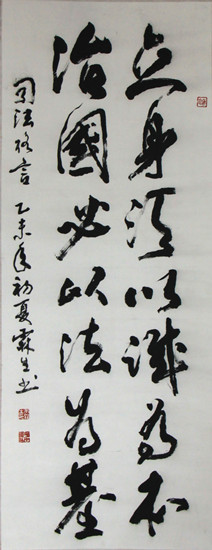 立身须以诚为本
治國必以法为基
司法格言 乙未年初夏霖生书